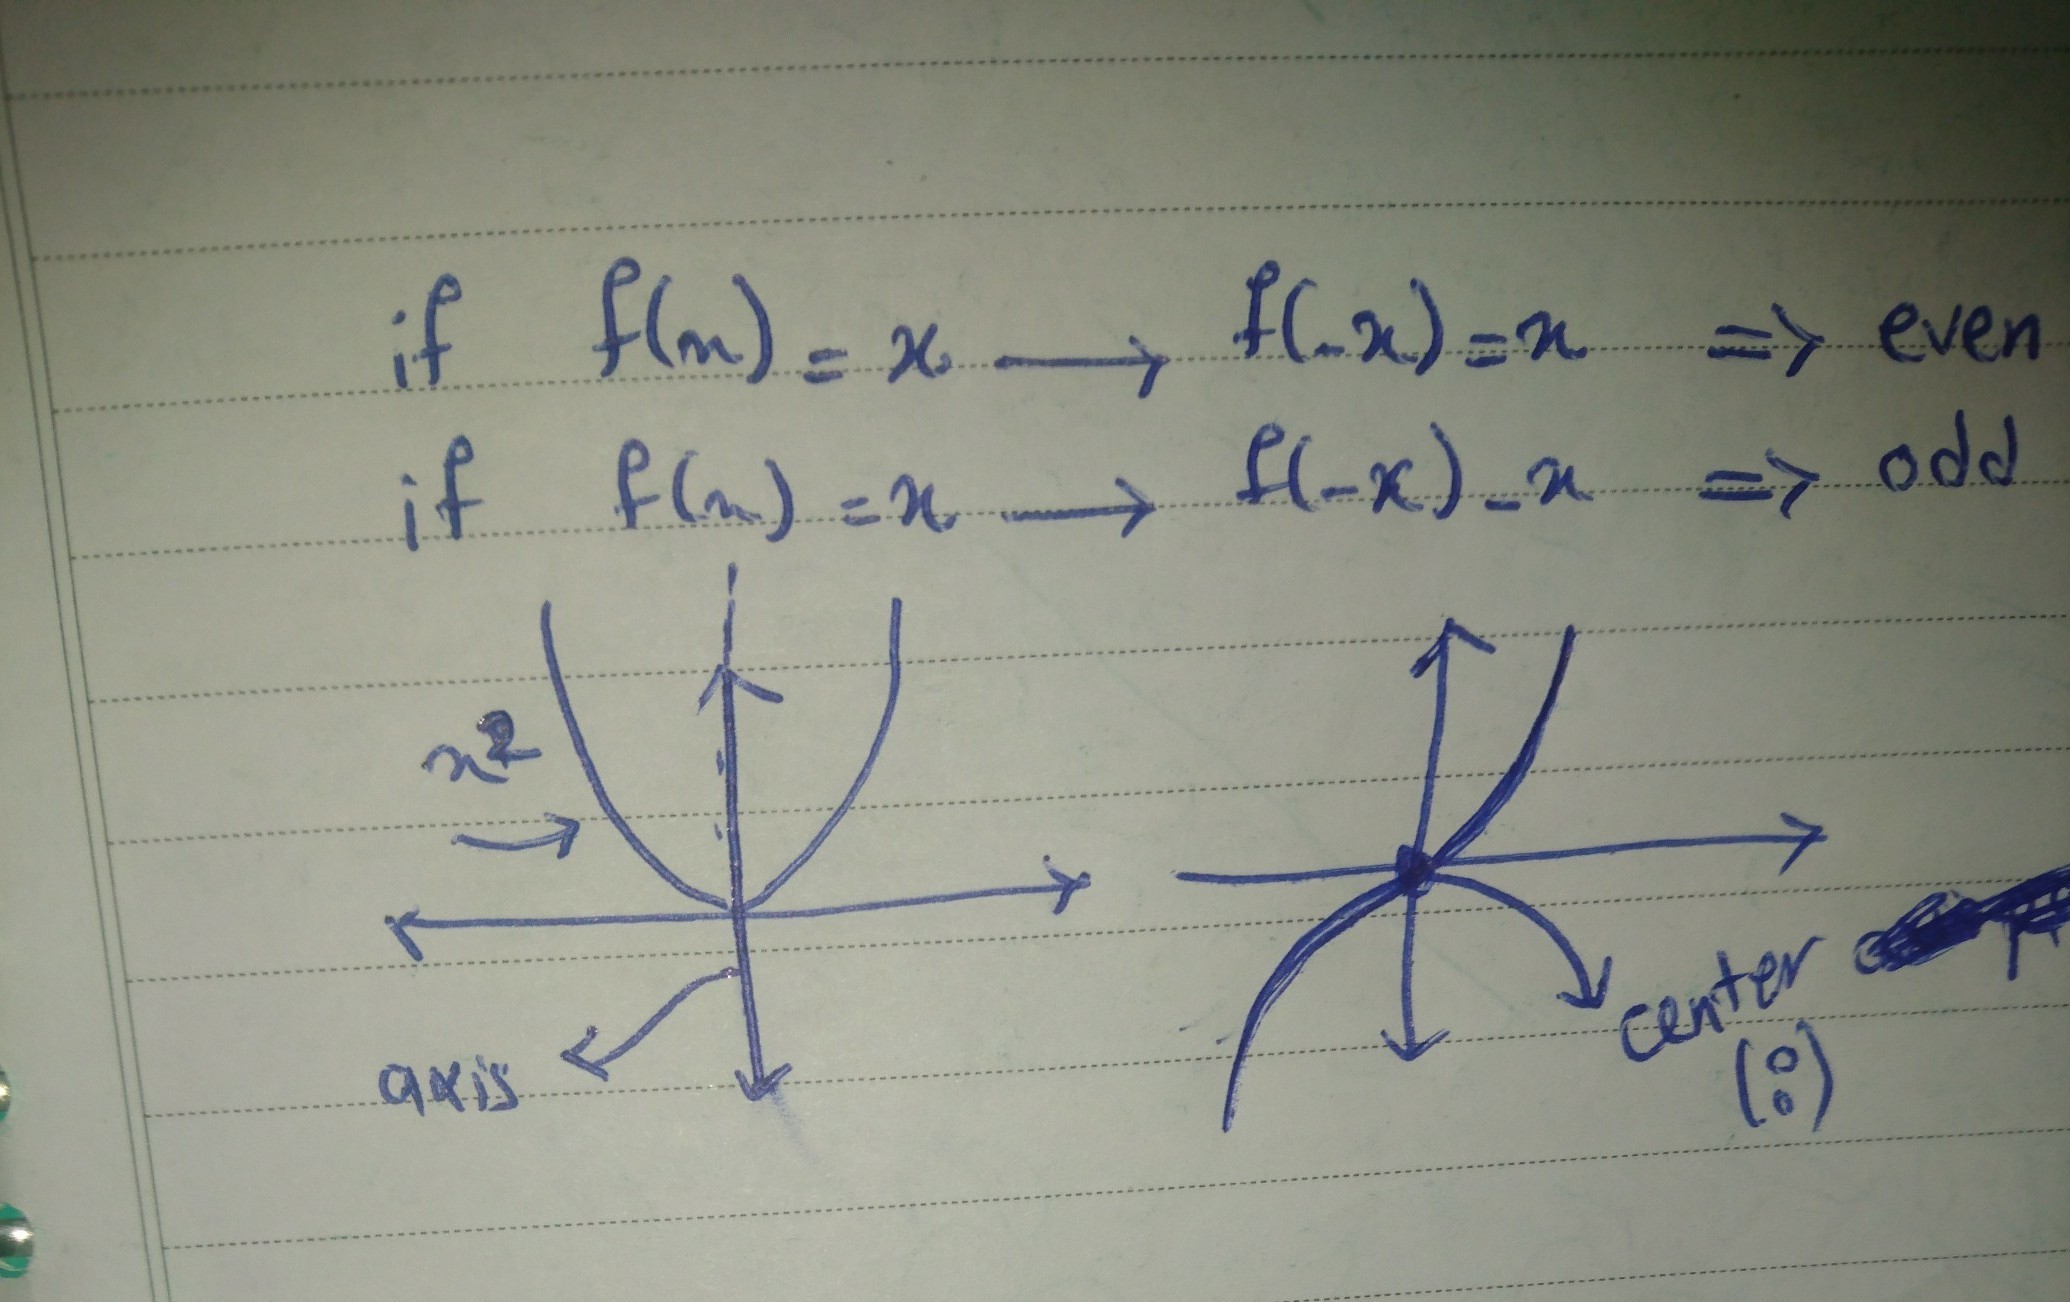 if f(x) = x → f(-x) = x => even
if f(x) = x → f(-x) - x => odd
x²
axis
center
(0 0)